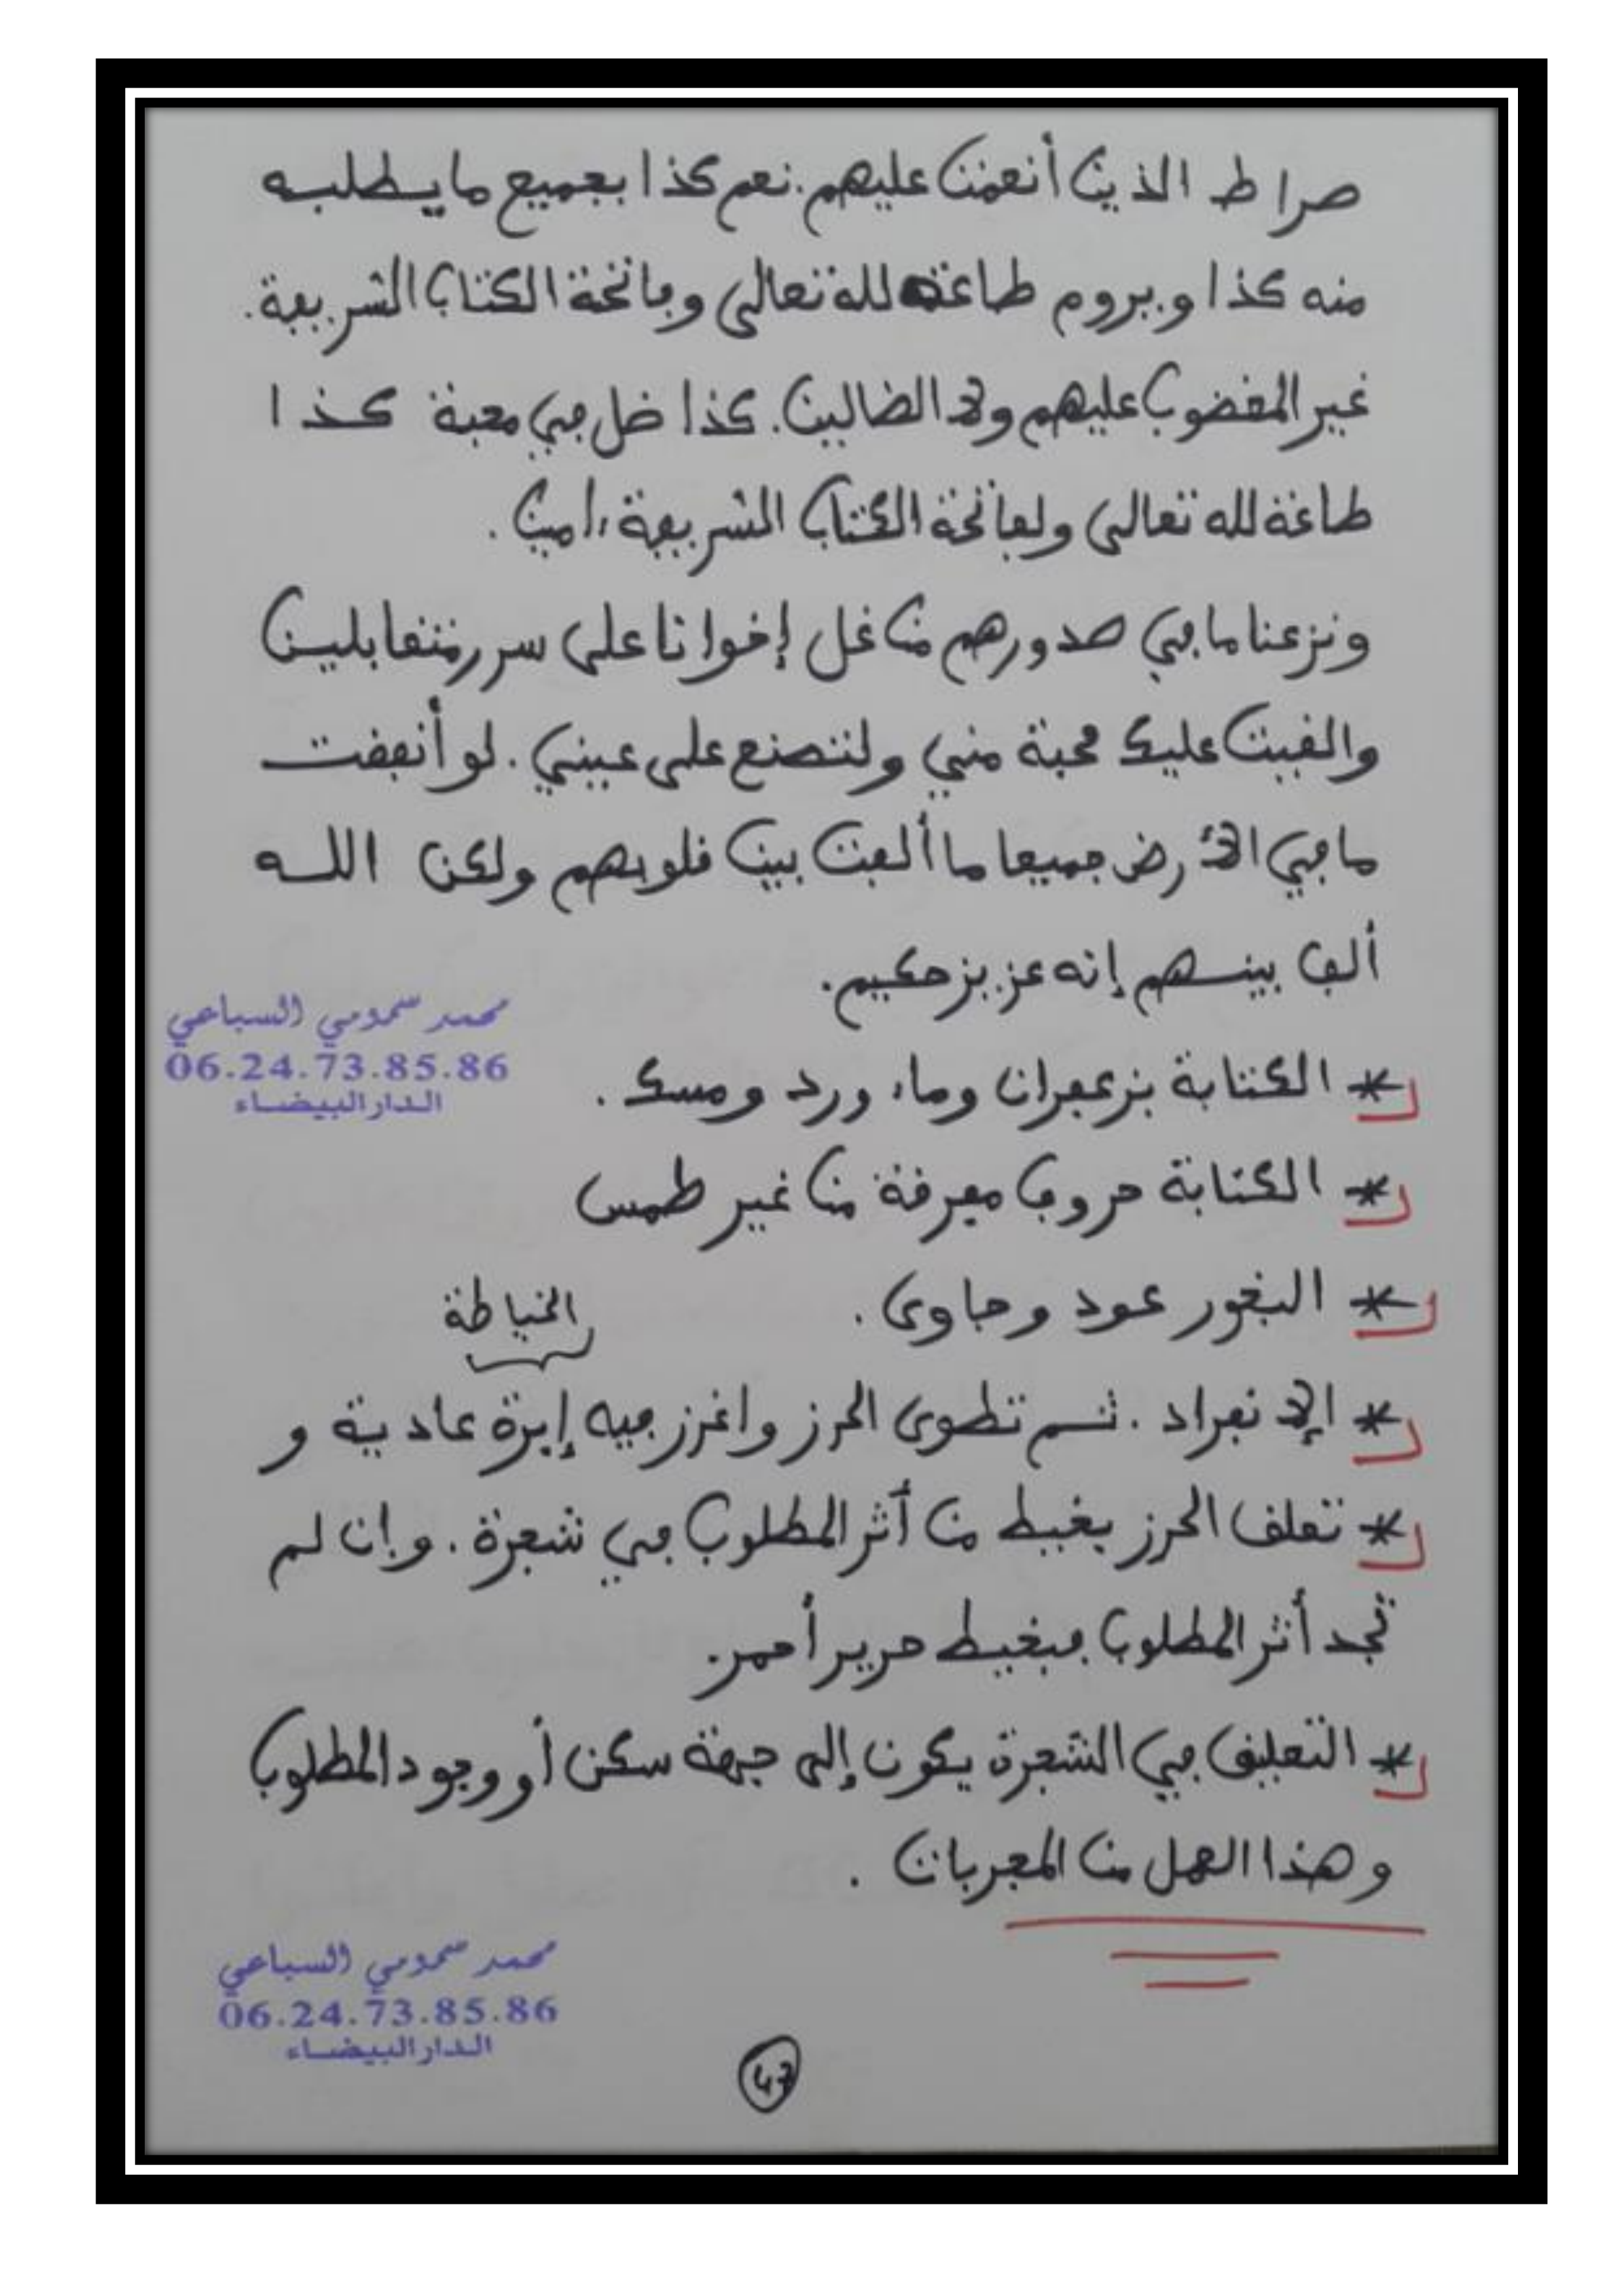 صراط الذين أنعمت عليهم. نعم كذا بجميع ما يطلبه
منه كذا و يروم طاعة لله تعالى وفاتحة الكتاب الشريفة.
غير المغضوب عليهم ولا الضالين. كذا ضل في محبة كذا
طاعة لله تعالى ولفاتحة الكتاب الشريفة ءامين.
ونزعنا ما في صدورهم من غل إخوانا على سرر متقابلين
والقيت عليك محبة مني ولتصنع على عيني. لو أنفقت
ما في الأرض جميعا ما ألفت بين قلوبهم ولكن الله
ألف بينهم إنه عزيز حكيم.
محمد سمومي السباعي
06.24.73.85.86
الدار البيضاء
* الكتابة بزعفران وماء ورد ومسك.
* الكتابة حروف مفرقة من غير طمس
* البخور عود وجاوى.
الخياطة
* الإنفراد. ثم تطوى الحرز واغرز فيه إبرة عادية و
* تعلق الحرز بخيط من أثر المطلوب في شجرة. وإن لم
تجد أثر المطلوب فبخيط حرير أحمر.
* التعليق في الشجرة يكون إلى جهة سكن أو وجود المطلوب
وهذا العمل من المجربات.
محمد سمومي السباعي
06.24.73.85.86
الدار البيضاء
47